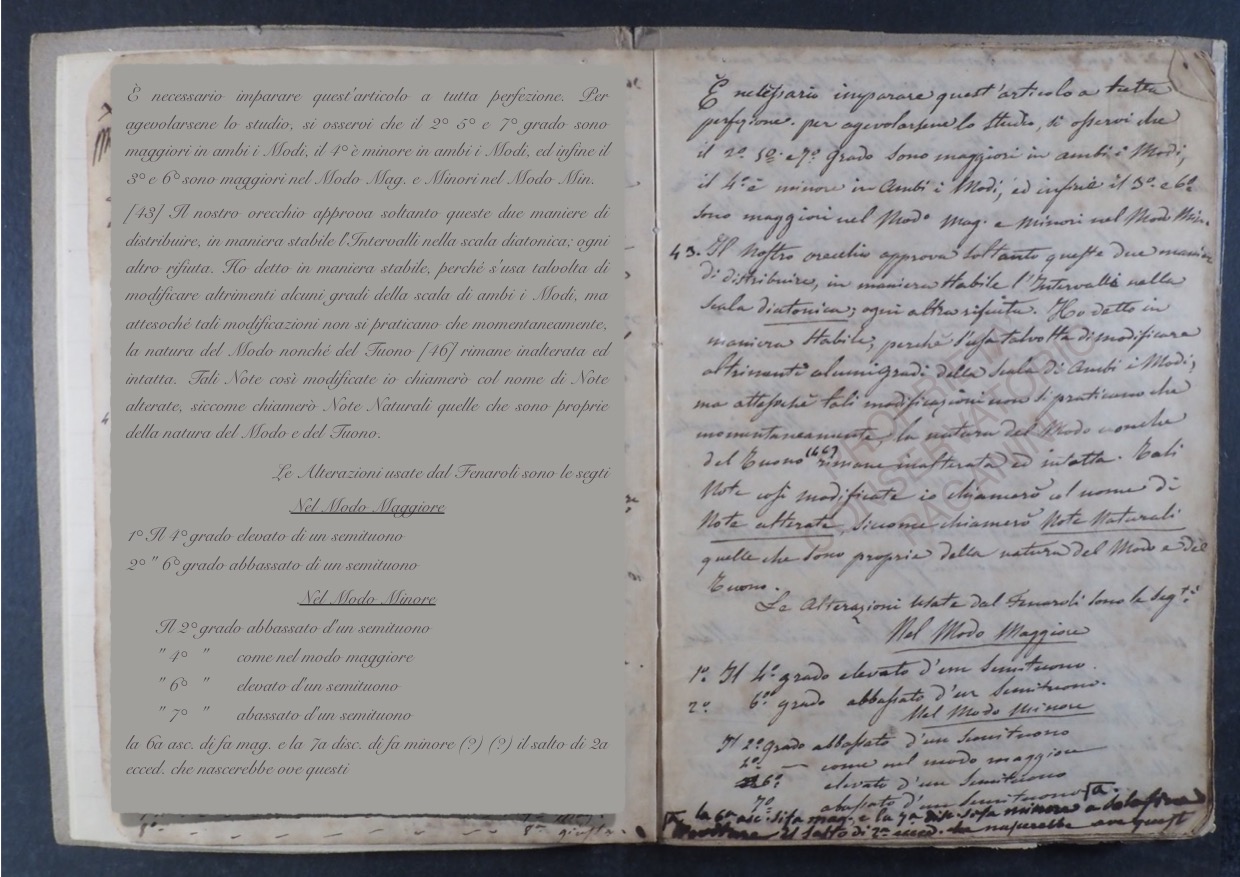 È necessario imparare quest'articolo a tutta perfezione. Per
agevolarsene lo studio, si osservi che il 2° 5° e 7° grado sono
maggiori in ambi i Modi, il 4° è minore in ambi i Modi, ed infine il
3° e 6° sono maggiori nel Modo Mag. e Minori nel Modo Min.
[43] Il nostro orecchio approva soltanto queste due maniere di
distribuire, in maniera stabile l'Intervalli nella scala diatonica; ogni
altro rifiuta. Ho detto in maniera stabile, perché s'usa talvolta di
modificare altrimenti alcuni gradi della scala di ambi i Modi, ma
attesoché tali modificazioni non si praticano che momentaneamente,
la natura del Modo nonché del Tuono [46] rimane inalterata ed
intatta. Tali Note così modificate io chiamerò col nome di Note
alterate, siccome chiamerò Note Naturali quelle che sono proprie
della natura del Modo e del Tuono.
Le Alterazioni usate dal Fenaroli sono le segti
Nel Modo Maggiore
1° Il 4° grado elevato di un semituono
2° " 6° grado abbassato di un semituono
Nel Modo Minore
Il 2° grado abbassato d'un semituono
" 4° " come nel modo maggiore
" 6° " elevato d'un semituono
" 7° " abassato d'un semituono
la 6a asc. di fa mag. e la 7a disc. di fa minore (?) (?) il salto di 2a
ecced. che nascerebbe ove questi
È necessario imparare quest'articolo a tutta
perfezione. per agevolarsene lo studio, si osservi che
il 2° 5° e 7° grado sono maggiori in ambi i Modi,
il 4° è minore in Ambi i Modi, ed infine il 3° e 6°
sono maggiori nel Modo Mag. e minori nel Modo Min.
43. Il Nostro orecchio approva soltanto queste due maniere
di distribuire, in maniera stabile l'Intervalli nella
scala diatonica; ogni altra rifiuta. Ho detto in
maniera stabile, perchè s'usa talvolta di modificare
altrimenti alcuni gradi della scala di Ambi i Modi,
ma attesochè tali modificazioni non si praticano che
momentaneamente, la natura del Modo nonche
del Tuono (46) rimane inalterata ed intatta. Tali
Note così modificate io chiamerò col nome di
Note alterate, siccome chiamerò Note Naturali
quelle che sono proprie della natura del Modo e del
Tuono.
Le Alterazioni usate dal Fenaroli sono le seg.ti
Nel Modo Maggiore
1° Il 4° grado elevato d'un Semituono.
2° 6° grado abbassato d'un Semituono.
Nel Modo Minore
Il 2° grado abbassato d'un Semituono
4° — come nel modo maggiore
6° elevato d'un Semituono
7° abassato d'un Semituono
la 6a asc. di fa mag. e la 7a disc. di fa minore
il salto di 2a ecced. che nascerebbe ove questi
PROPRIETÀ
CONSERVATORIO
PAGANINI